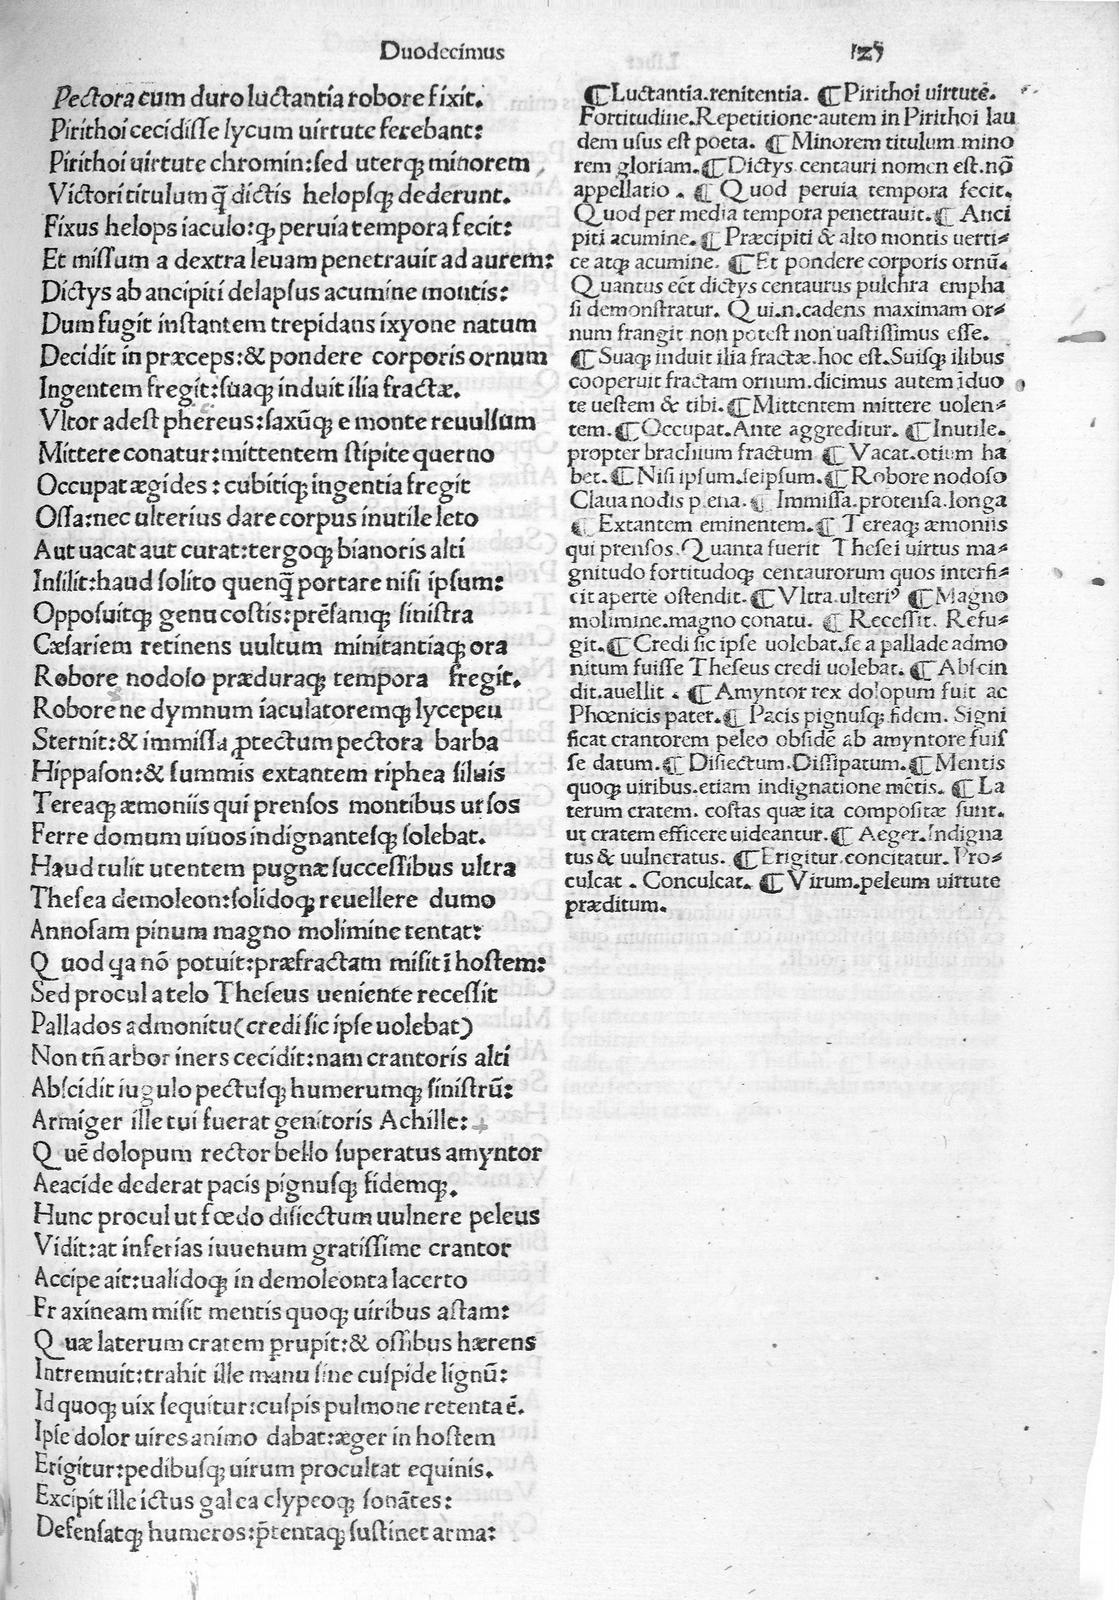 Duodecimus
125
Pectora cum duro luctantia robore fixit.
Pirithoi cecidisse lycum uirtute ferebant:
Pirithoi uirtute chromin: sed uterq; minorem
Victori titulum q̃ dictis helopsq; dederunt.
Fixus helops iaculo: q; peruia tempora fecit:
Et missum a dextra leuam penetrauit ad aurem:
Dictys ab ancipiti delapsus acumine montis:
Dum fugit instantem trepidans ixyone natum
Decidit in præceps: & pondere corporis ornum
Ingentem fregit: suaq; induit ilia fractæ.
Vltor adest phereus: saxũq; e monte reuulsum
Mittere conatur: mittentem stipite querno
Occupat ægides: cubitiq; ingentia fregit
Ossa: nec ulterius dare corpus inutile leto
Aut uacat aut curat: tergoq; bianoris alti
Insilit: haud solito quenq̃ portare nisi ipsum:
Opposuitq; genu costis: prẽsamq; sinistra
Cæsariem retinens uultum minitantiaq; ora
Robore nodoso præduraq; tempora fregit.
Robore nedymnum iaculatoremq; lycepeu
Sternit: & immissa ꝓtectum pectora barba
Hippason: & summis extantem riphea siluis
Tereaq; æmoniis qui prensos montibus ursos
Ferre domum uiuos indignantesq; solebat.
Haud tulit utentem pugnæ successibus ultra
Thesea demoleon: solidoq; reuellere dumo
Annosam pinum magno molimine tentat:
Quod qa nõ potuit: præfractam misit ĩ hostem:
Sed procul a telo Theseus ueniente recessit
Pallados admonitu (credi sic ipse uolebat)
Non tñ arbor iners cecidit: nam crantoris alti
Abscidit iugulo pectusq; humerumq; sinistrũ:
Armiger ille tui fuerat genitoris Achille:
Quẽ dolopum rector bello superatus amyntor
Aeacide dederat pacis pignusq; fidemq;.
Hunc procul ut fœdo disiectum uulnere peleus
Vidit: at inferias iuuenum gratissime crantor
Accipe ait: ualidoq; in demoleonta lacerto
Fraxineam misit mentis quoq; uiribus astam:
Quæ laterum cratem ꝑrupit: & ossibus hærens
Intremuit: trahit ille manu sine cuspide lignũ:
Id quoq; uix sequitur: cuspis pulmone retenta ẽ.
Ipse dolor uires animo dabat: æger in hostem
Erigitur: pedibusq; uirum proculcat equinis.
Excipit ille ictus galea clypeoq; sonãtes:
Defensatq; humeros: p̃tentaq; sustinet arma:
¶ Luctantia. renitentia. ¶ Pirithoi uirtutẽ.
Fortitudine. Repetitione autem in Pirithoi lau
dem usus est poeta. ¶ Minorem titulum mino
rem gloriam. ¶ Dictys centauri nomen est. nõ
appellatio. ¶ Quod peruia tempora fecit.
Quod per media tempora penetrauit. ¶ Anci
piti acumine. ¶ Præcipiti & alto montis uerti=
ce atq; acumine. ¶ Et pondere corporis ornũ.
Quantus eet dictys centaurus pulchra empha
si demonstratur. Qui.n.cadens maximam or=
num frangit non potest non uastissimus esse.
¶ Suaq; induit ilia fractæ. hoc est. Suisq; ilibus
cooperuit fractam ornum. dicimus autem iduo
te uestem & tibi. ¶ Mittentem mittere uolen=
tem. ¶ Occupat. Ante aggreditur. ¶ Inutile.
propter brachium fractum ¶ Vacat. otium ha
bet. ¶ Nisi ipsum. seipsum. ¶ Robore nodoso
Claua nodis plena. ¶ Immissa. protensa. longa
¶ Extantem eminentem. ¶ Tereaq; æmoniis
qui prensos. Quanta fuerit Thesei uirtus ma=
gnitudo fortitudoq; centaurorum quos interfi=
cit aperte ostendit. ¶ Vltra. ulteriꝰ ¶ Magno
molimine. magno conatu. ¶ Recessit. Refu=
git. ¶ Credi sic ipse uolebat. se a pallade admo
nitum fuisse Theseus credi uolebat. ¶ Abscin
dit. auellit. ¶ Amyntor rex dolopum fuit ac
Phœnicis pater. ¶ Pacis pignusq; fidem. Signi
ficat crantorem peleo obsidẽ ab amyntore fuis
se datum. ¶ Disiectum. Dissipatum. ¶ Mentis
quoq; uiribus. etiam indignatione mẽtis. ¶ La
terum cratem. costas quæ ita compositæ sunt.
ut cratem efficere uideantur. ¶ Aeger. Indigna
tus & uulneratus. ¶ Erigitur. concitatur. Pro=
culcat. Conculcat. ¶ Virum. peleum uirtute
præditum.